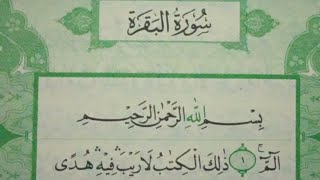 سُورَةُ الْبَقَرَةِ
بِسْمِ اللهِ الرَّحْمٰنِ الرَّحِيْمِ
الٓمّٓ ۚ ١ ذٰلِكَ الْكِتٰبُ لَا رَيْبَ ۛ فِيْهِ ۛ هُدًى